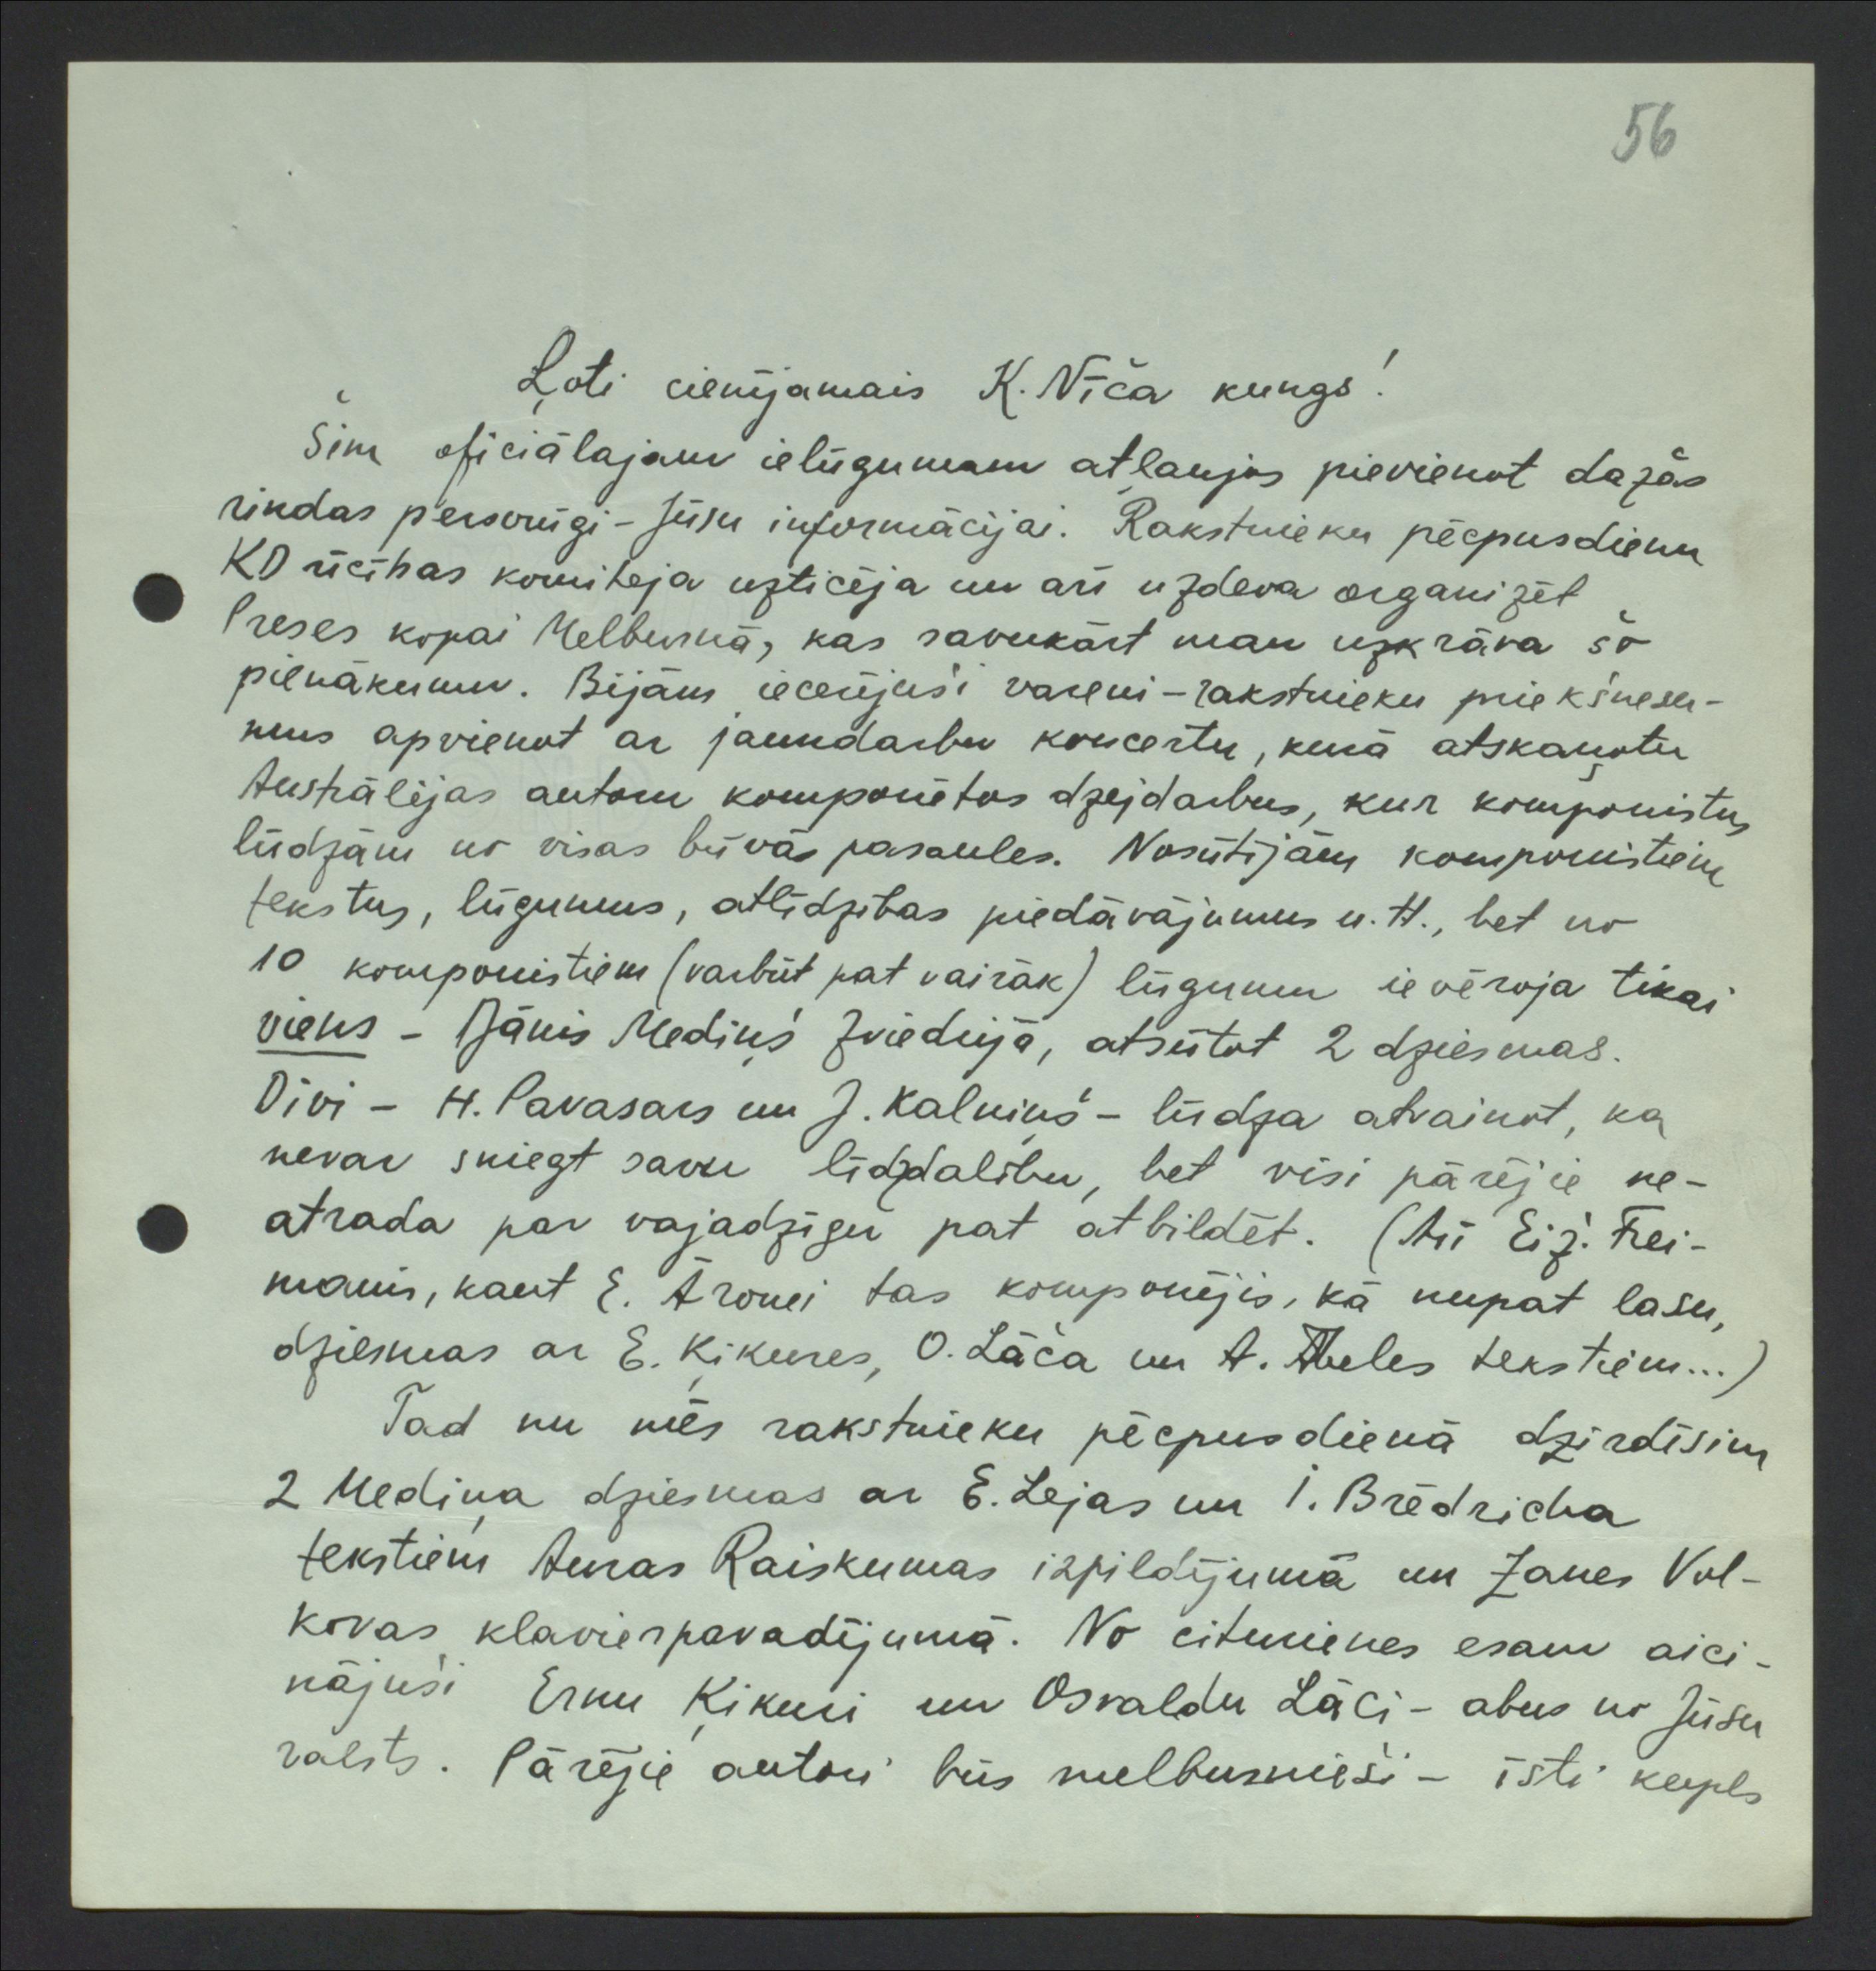 56
Ļoti cienījamais K. Nīča kungs!
Šim oficiālajam ielūgumam atļaujos pievienot dažas
rindas personīgi – Jūsu informācijai. Rakstnieku pēcpusdienu
KD rīcības komiteja uzticēja un arī uzdeva organizēt
Preses kopai Melburnā, kas savukārt man uzkrāva šo
pienākumu. Bijām iecerējuši vareni – rakstnieku priekšnesu-
mus apvienot ar jaundarbu koncertu, kurā atskaņotu
Austrālijas autoru komponētos dzejdarbus, kur komponistus
lūdzām no visas brīvās pasaules. Nosūtījām komponistiem
tekstus, lūgumus, atlīdzības piedāvājumus u.tt., bet no
10 komponistiem (varbūt pat vairāk) lūgumu ievēroja tikai
viens – Jānis Mediņš Zviedrijā, atsūtot 2 dziesmas.
Divi – H. Pavasars un J. Kalniņš – lūdza atvainot, ka
nevar sniegt savu līdzdalību, bet visi pārējie ne-
atrada par vajadzīgu pat atbildēt. (Arī Eiž. Frei-
manis, kaut E. Āronei tas komponējis, kā nupat lasu,
dziesmas ar E. Ķikures, O. Lāča un A. Ābeles tekstiem...)
Tad nu mēs rakstnieku pēcpusdienā dzirdēsim
2 Mediņa dziesmas ar E. Lejas un I. Brēdricha
tekstiem Annas Raiskumas izpildījumā un Zanes Vol-
kovas klavierpavadījumā. No citurienes esam aici-
nājuši Ernu Ķikuri un Osvaldu Lāci – abus no Jūsu
valsts. Pārējie autori būs melburnieši – īsti kupls